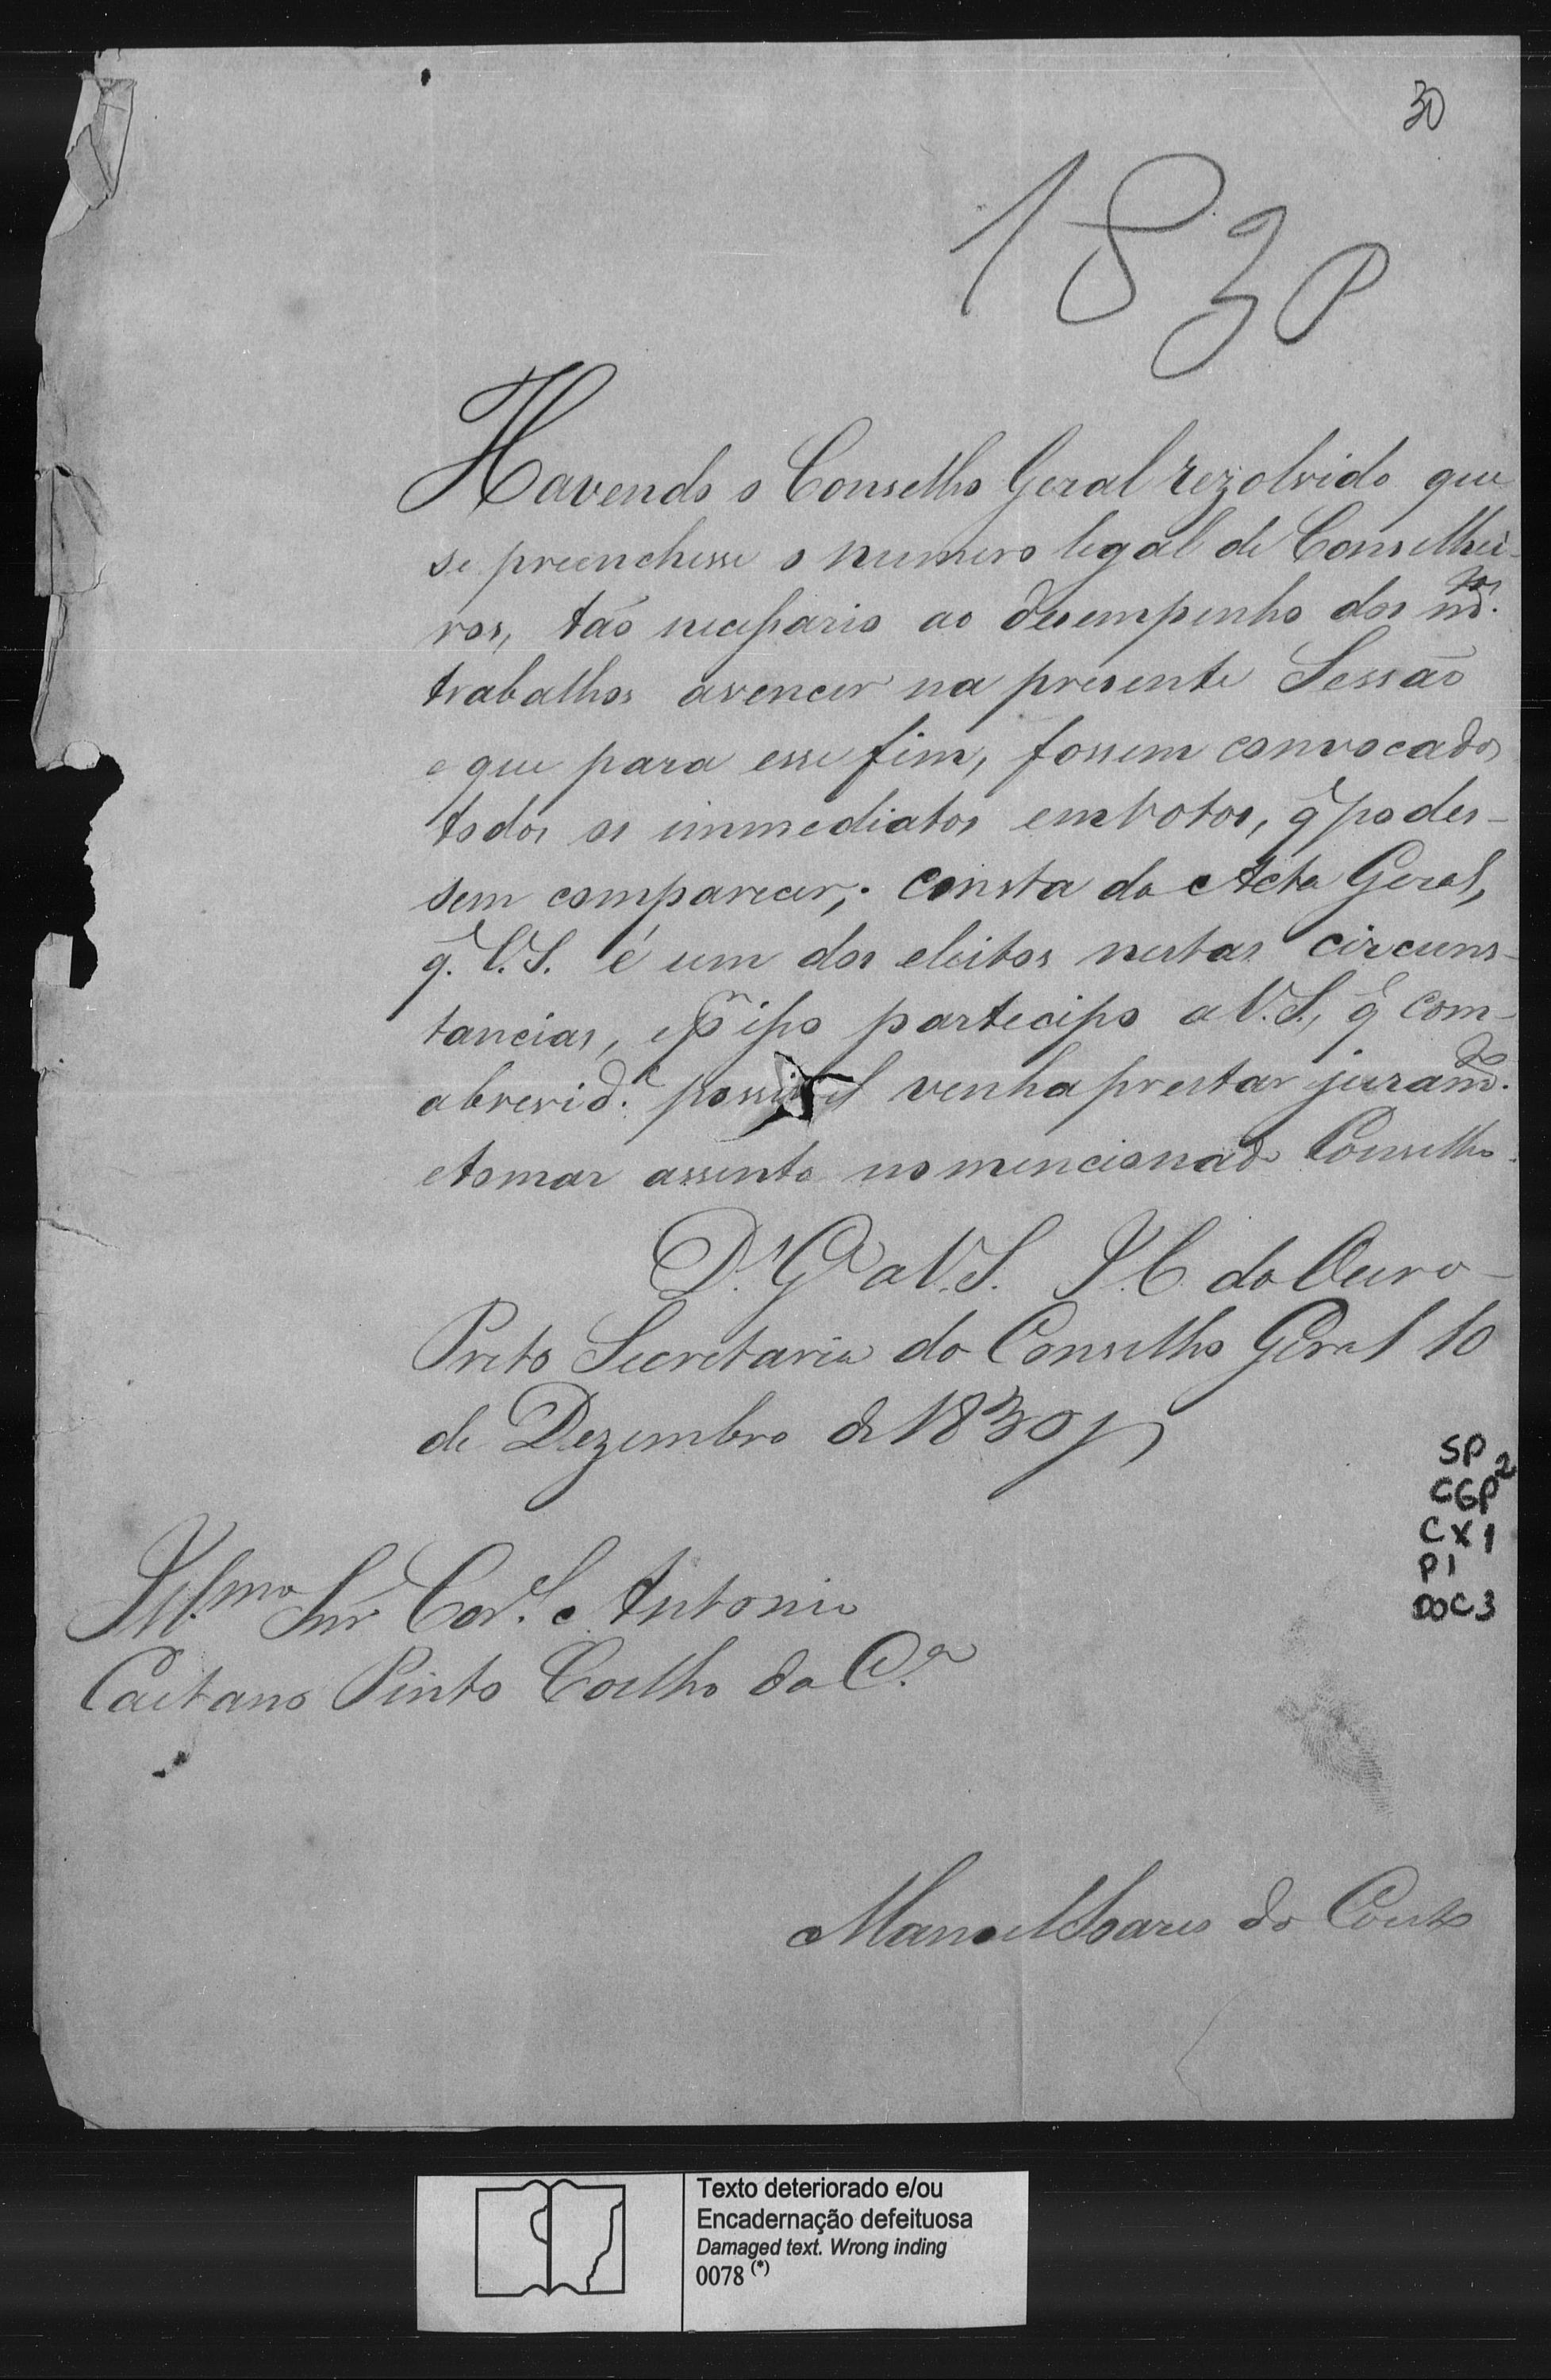 30
1830
Havendo o Conselho Geral rezolvido que
se preenchesse o numero legal de Conselhei-
ros, tão necessario ao desempenho dos m.tos
trabalhos avencer na presente Sessão
e que para esse fim, fossem convocados
todos os immediatos emvotos, q̃ podes-
sem comparecer; consta da Acta Geral,
q̃. V.S. é um dos eleitos nestas circuns-
tancias, e p.r isso partecipo a V.S., q̃ com
abrevid.e possivel venha prestar juram.to
etomar assento no mencionado Conselho.
D.s G.e a V.S. I.C. do Ouro-
Preto Secretaria do Conselho Geral 10
de Dezembro de 1830
Ill.mo Snr Cor.el Antonio
Caetano Pinto Coelho da C.a
Manoel Soares do Couto
SP
CGP2
CX1
P1
DOC3
Texto deteriorado e/ou
Encadernação defeituosa
Damaged text. Wrong inding
0078 (*)